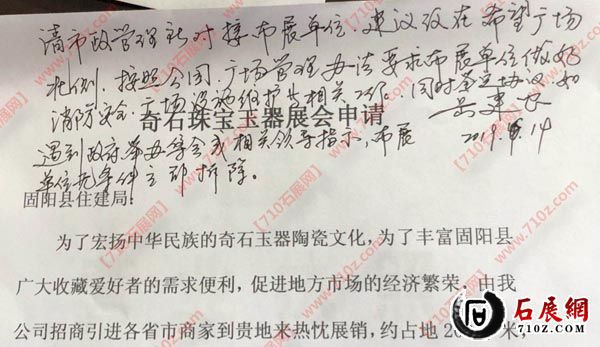 请市政管理所对接布展单位,建议放在希望广场
北侧,按照公园、广场管理办法要求布展单位做好
消防安全、广场设施维护等相关工作,同时签定协议,如
遇到政府举办等会或相关领导指示,布展
2019.8.14
单位无条件立即拆除。
奇石珠宝玉器展会申请
固阳县住建局:
为了宏扬中华民族的奇石玉器陶瓷文化,为了丰富固阳县
广大收藏爱好者的需求便利,促进地方市场的经济繁荣,由我
公司招商引进各省市商家到贵地来热忱展销,约占地 20 米,
石展網
710Z.COM
【710石展网】
www.710z.com